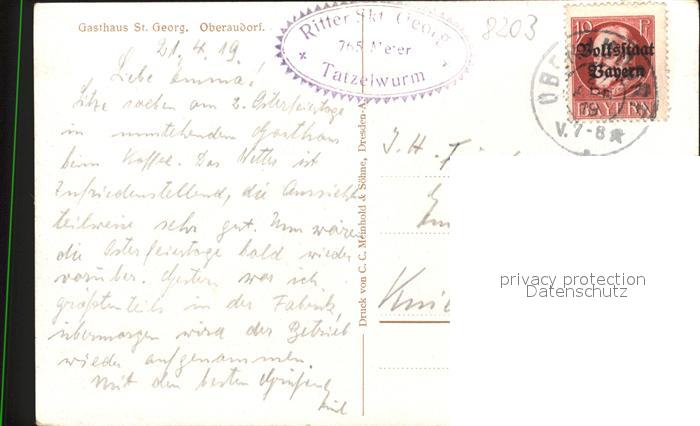 Gasthaus St. Georg. Oberaudorf.
21.4.19.
Liebe Emma!
Sitze soeben am 2. Osterfeiertage
in umstehendem Gasthaus
beim Kaffee. Das Wetter ist
zufriedenstellend, die Aussicht
teilweise sehr gut. Nun wären
die Osterfeiertage bald wieder
vorüber. Gestern war ich
größtenteils in der Fabrik,
übermorgen wird der Betrieb
wieder aufgenommen.
Mit den besten Grüßen
Ritter Skt. Georg
765 Meter
Tatzelwurm
8203
10 P
Volksstaat
Bayern
BAYERN
V. 7-8
Druck von C. C. Meinhold & Söhne, Dresden-A.
J. H.
privacy protection
Datenschutz